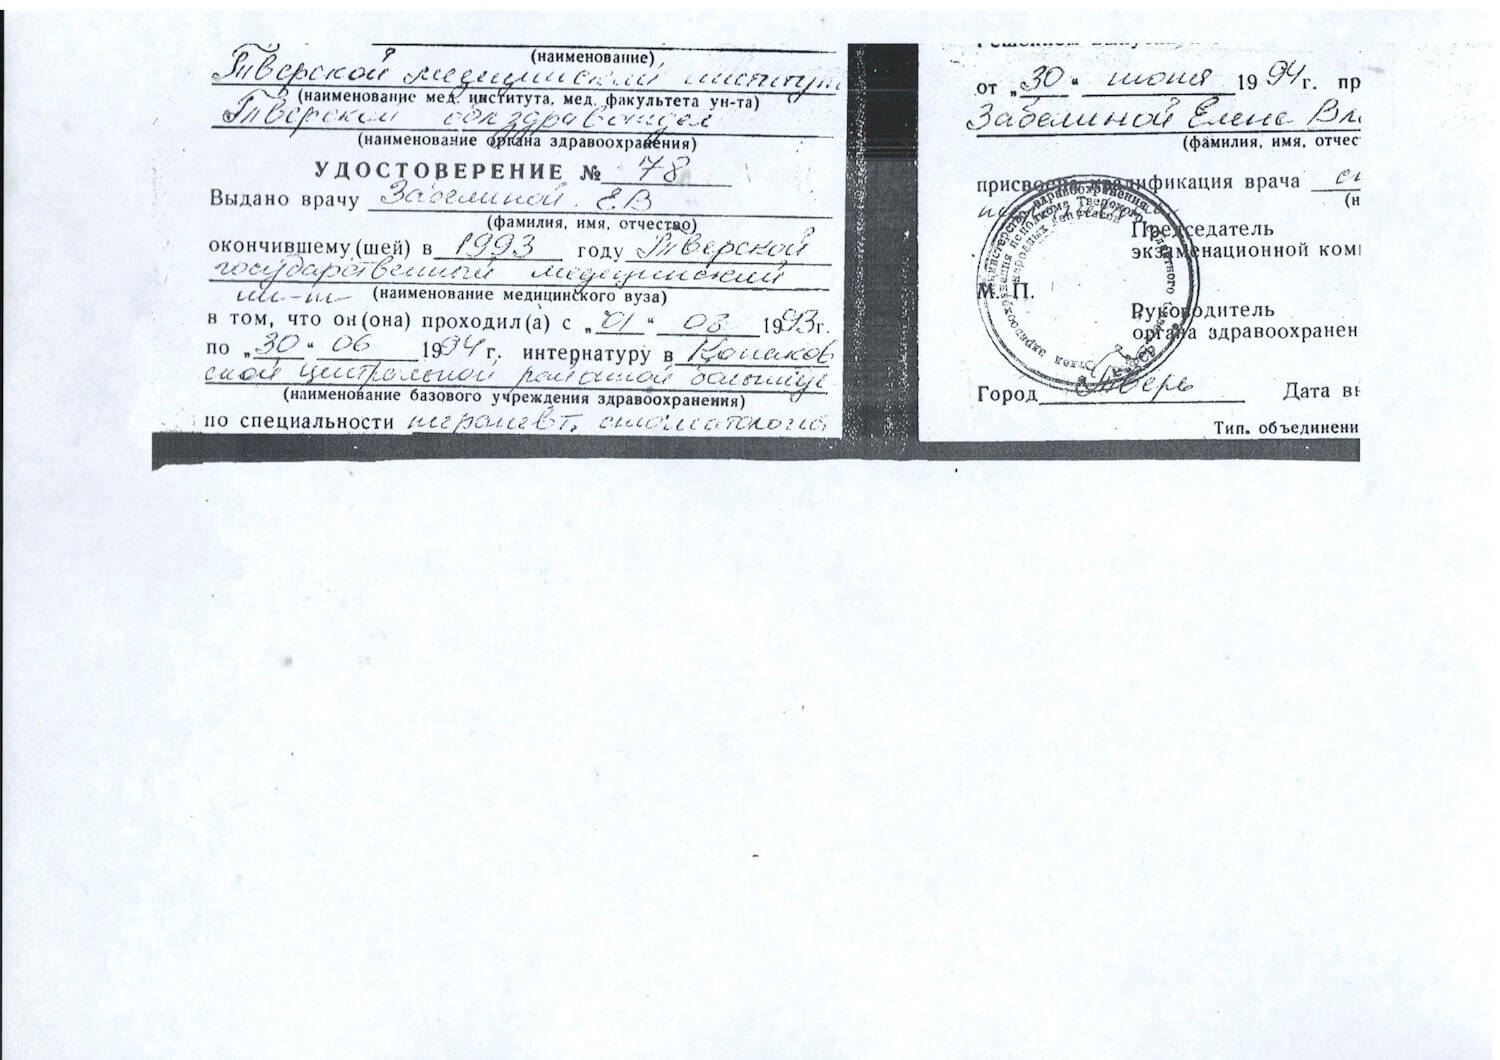 (наименование)
Тверской медицинский институт
(наименование мед. института, мед. факультета ун-та)
Тверским облздравотдел
(наименование органа здравоохранения)
УДОСТОВЕРЕНИЕ № 78
Выдано врачу Забелиной Е.В
(фамилия, имя, отчество)
окончившему (шей) в 1993 году Тверской
государственный медицинский
ин-т (наименование медицинского вуза)
в том, что он (она) проходил (а) с „01“ 08 1993г.
по „30“ 06 1994г. интернатуру в Конаков
ской центральной районной больнице
(наименование базового учреждения здравоохранения)
по специальности терапевт. стоматология
от „30“ июня 1994г. пр
Забелиной Елене Вл
(фамилия, имя, отчес
присвоена квалификация врача ст
(н
Председатель
экзаменационной ком
М. П.
Руководитель
органа здравоохранен
Город Тверь Дата в
Тип. объединени